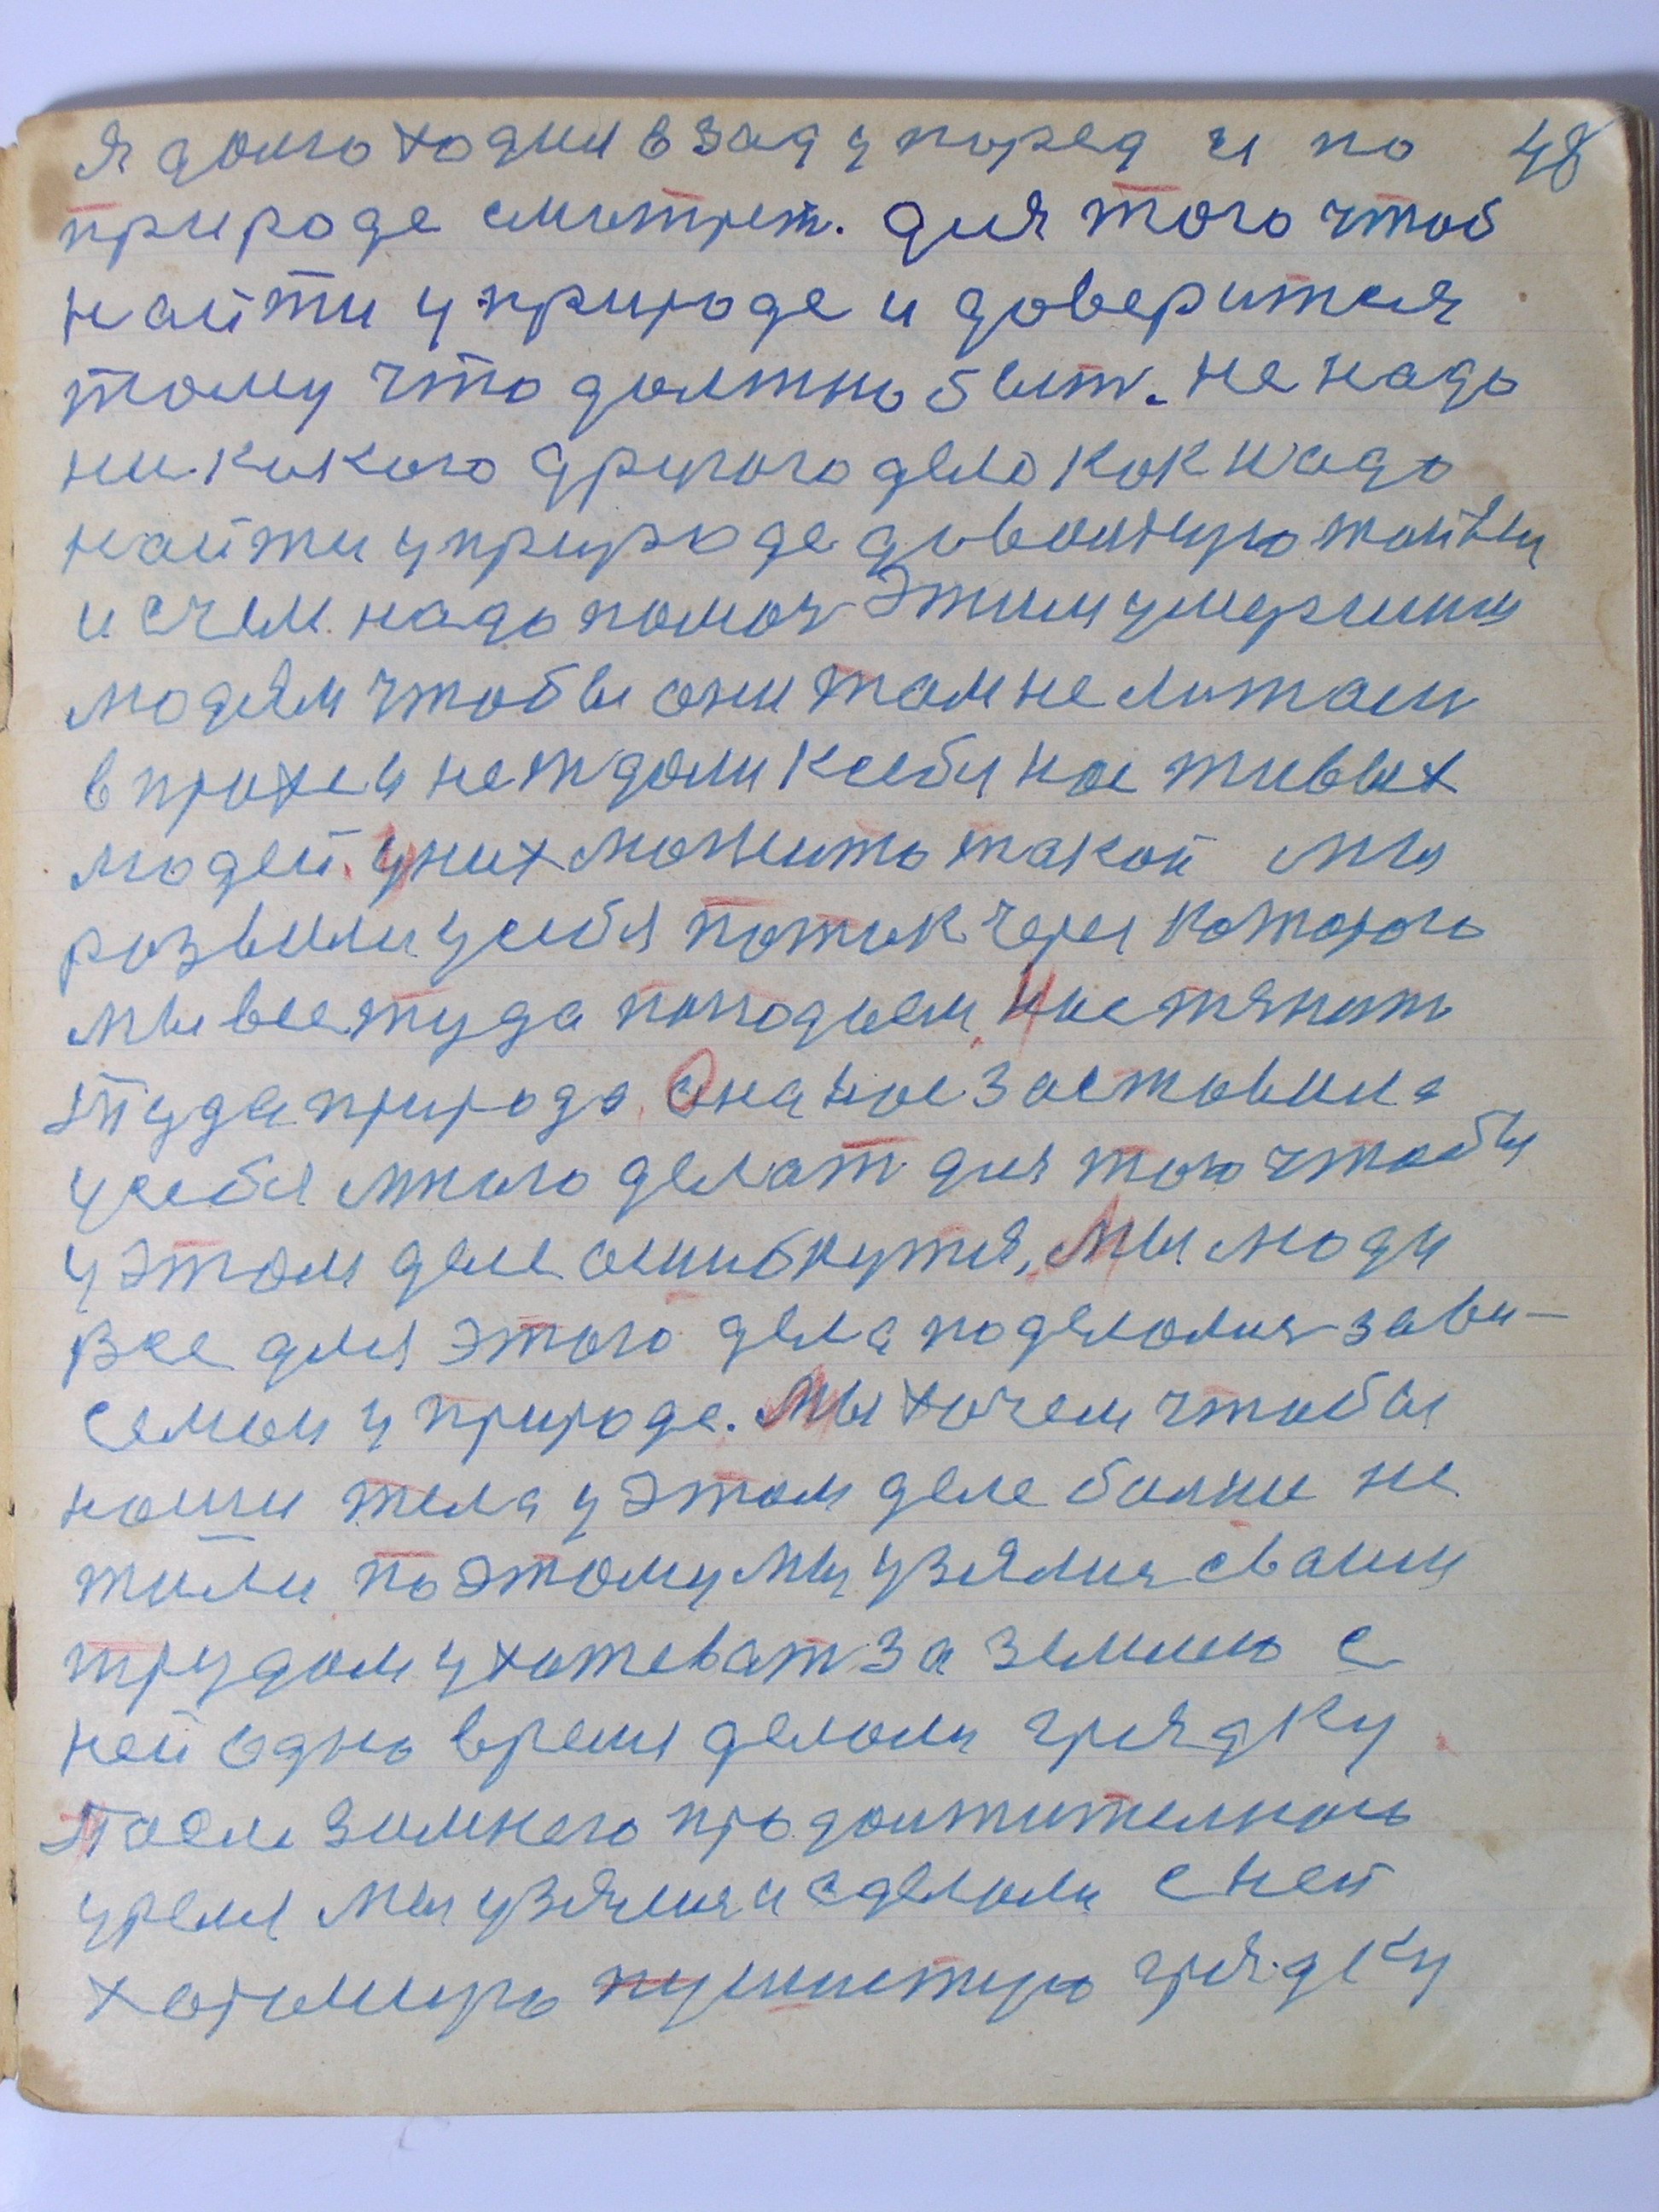 Я долго ходил взад уперед и по 48
природе смотрет. для того чтоб
найти у природе и доверится
тому что должно быт. не надо
никокого другого дело как надо
найти у природе довольную тайну
и счем надо помоч этим умершим
людям чтобы они там не лижали
в прахе и не ждали к себи нас живых
людей. у них может такой мы
розвили у себя поток через которого
мы все туда попадаем. нас тянит
туда природа. она нас заставила
у себя много делат для того чтобы
у этом деле ошибнутся, Мы люди
все для этого дела поделалися зави-
семом у природе. Мы хочем чтобы
наши тела у этом деле больше не
жили поэтому мы узялися своим
трудом ухажеват за землею с
ней одно время делали грядку
После зимнего продолжителного
уремя мы узялися и сделали с ней
хорошую пушистую грядку